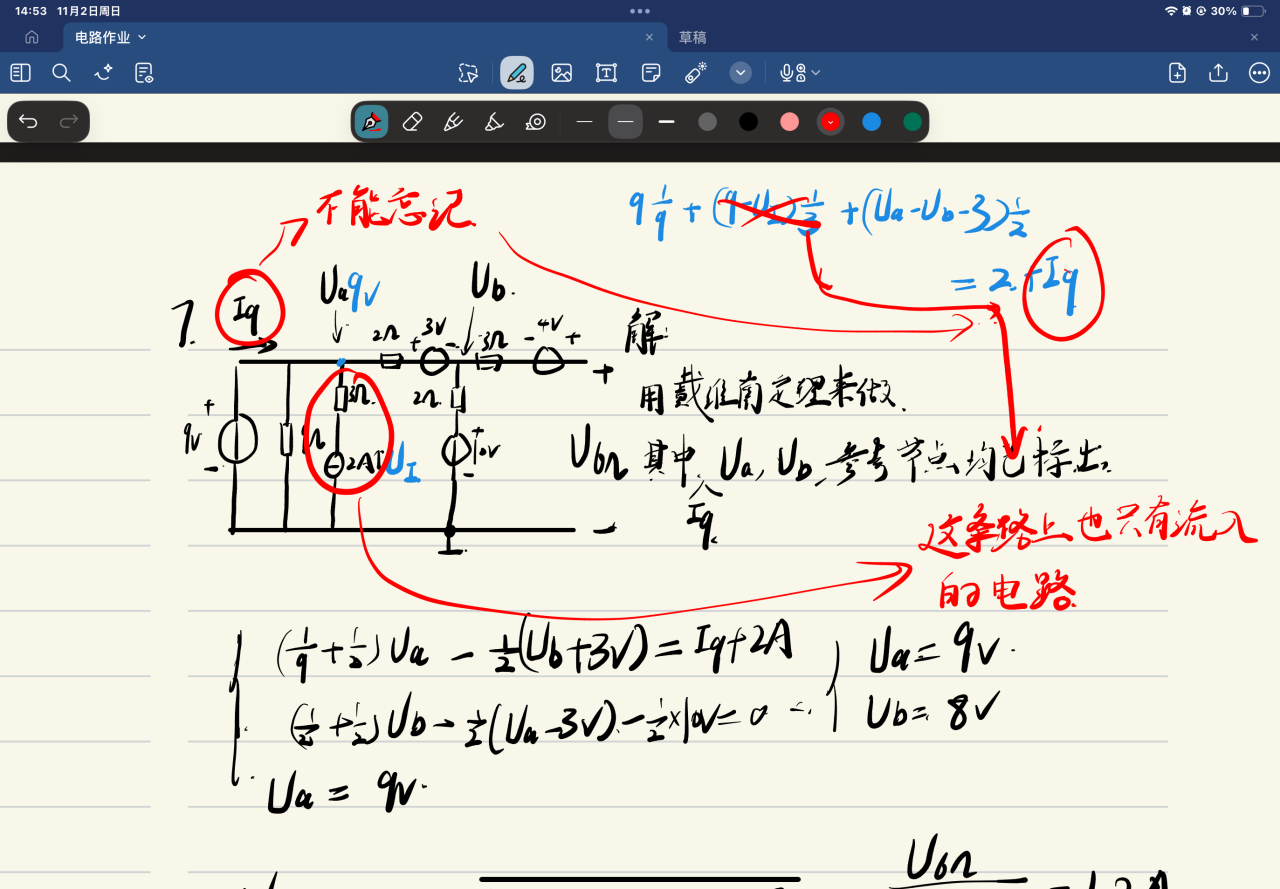 14:53 11月2日周日
30%
电路作业
草稿
不能忘记
9 1/9 + (9-U₂)1/3 + (Ua-Ub-3)1/2
= 2.+Iq
7.
Iq
Ua 9V
Ub.
2Ω
+ 3V -
3Ω
- 4V +
解:
+
用戴维南定理来做.
3Ω
2Ω
+
9V
-
9Ω
2A↑
UI
+
10V
-
U6Ω 其中, Ua, Ub, 参考节点均已标出.
Iq
-
这条路上也只有流入
的电路
(1/9+1/2)Ua - 1/2(Ub+3V) = Iq+2A
(1/2+1/2)Ub - 1/2(Ua-3V) - 1/2×10V = 0
Ua = 9V.
Ua = 9V.
Ub = 8V
U6Ω